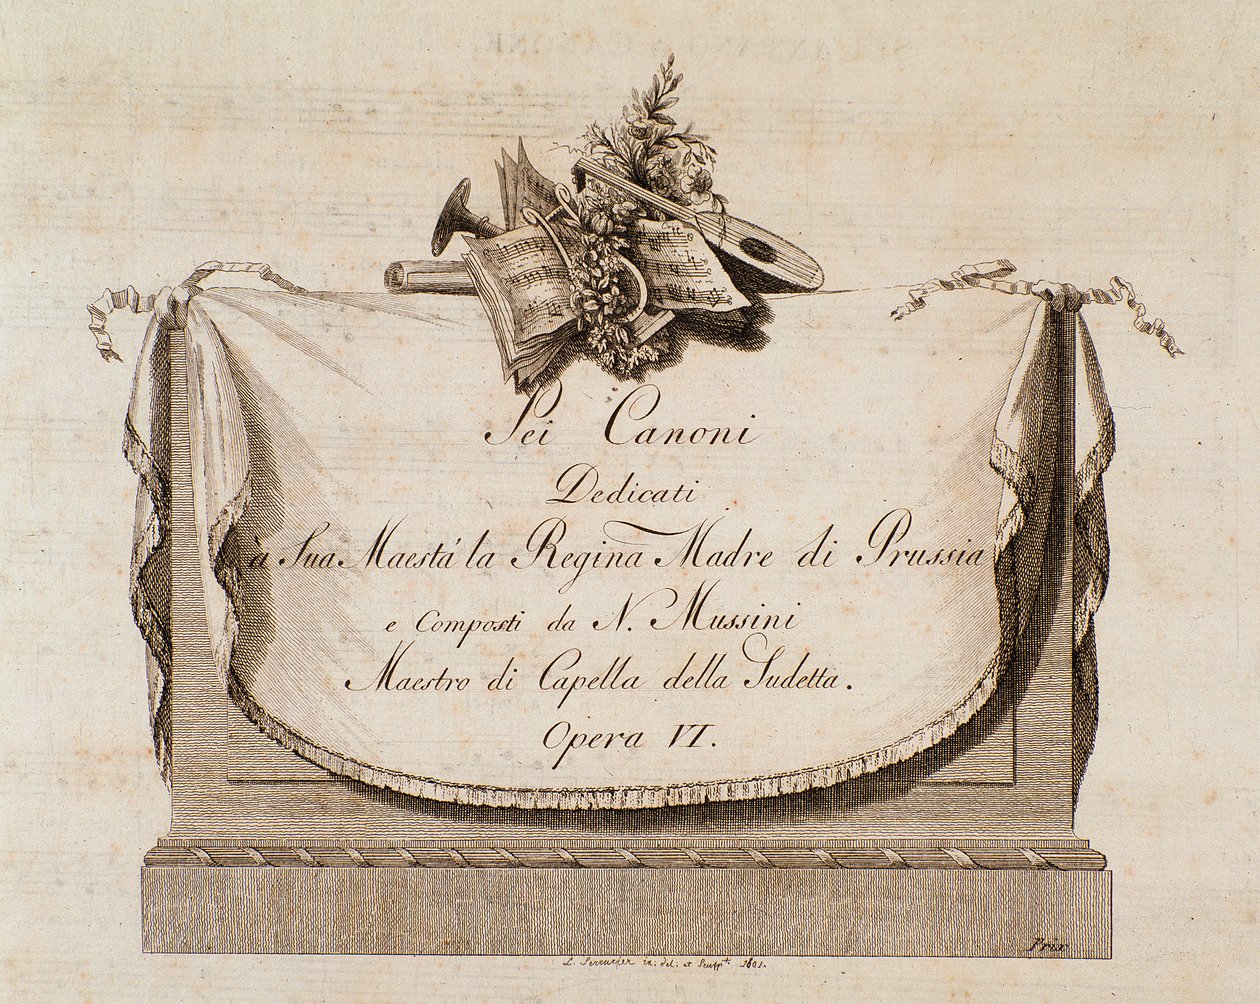 Sei Canoni
Dedicati
à Sua Maestá la Regina Madre di Prussia
e Composti da N. Mussini
Maestro di Capella della Sudetta.
Opera VI.
Prix
L. Serrurier in: del. et Sculpt. 1801.